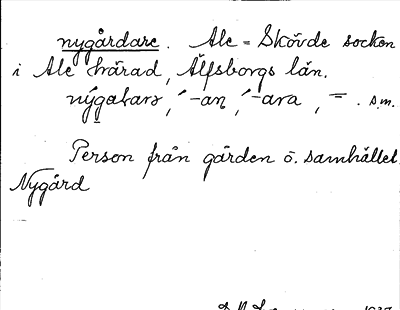 nygårdare. Ale-Skövde socken
i Ale härad, Älfsborgs län.
nýgaƚarə, ´-an, ´-ara, =. s.m.
Person från gården o. samhället
Nygård